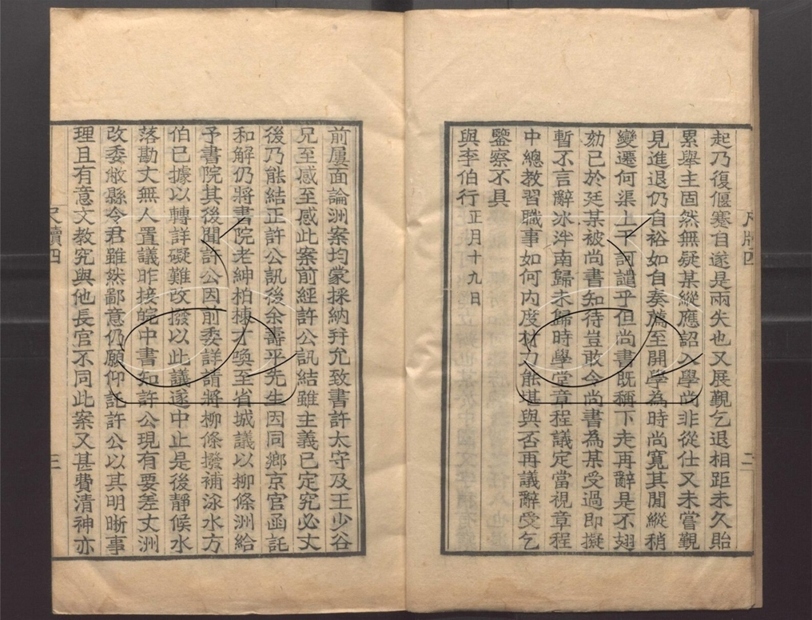 起乃復偃蹇自遂是兩失也又展覲乞退相距未久貽
累舉主固然無疑某縱應詔入學尚非從仕又未嘗覲
見進退仍自裕如自奏薦至開學為時尚寬其閒縱稍
變遷何渠上干訶譴乎但尚書既稱下走再辭是不翅
劾已於廷某被尚書知待豈敢令尚書為某受過即擬
暫不言辭冰泮南歸未歸時學堂章程議定當視章程
中總教習職事如何內度材力能堪與否再議辭受乞
鑒察不具
與李伯行 正月十九日
尺牘四
二
前屢面論洲案均蒙採納幷允致書許太守及王少谷
兄至感至感此案前經許公訊結雖主義已定究必丈
後乃能結正許公訊後余壽平先生因同鄉京官函託
和解仍將書院老紳柏棟才喚至省城議以柳條洲給
予書院其後聞許公因前委詳請將柳條撥補泳水方
伯已據以轉詳礙難改撥以此議遂中止是後靜候水
落勘丈無人置議昨接皖中書知許公現有要差丈洲
改委敝縣令君雖然鄙意仍願仰託許公以其明晰事
理且有意文教究與他長官不同此案又甚費清神亦
尺牘四
三